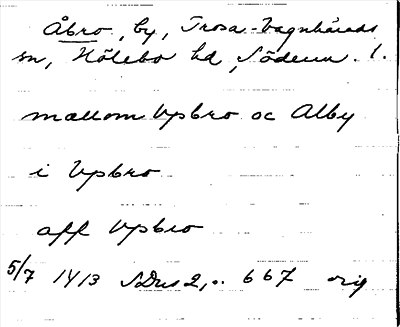 Åbro, by, Trosa-Vagnhärads
sn, Hölebo hd, Söderm. l.
mællom Vpbro oc Alby
i Vpbro
aff Vpbro
5/7 1413 SDns 2, s. 667 orig